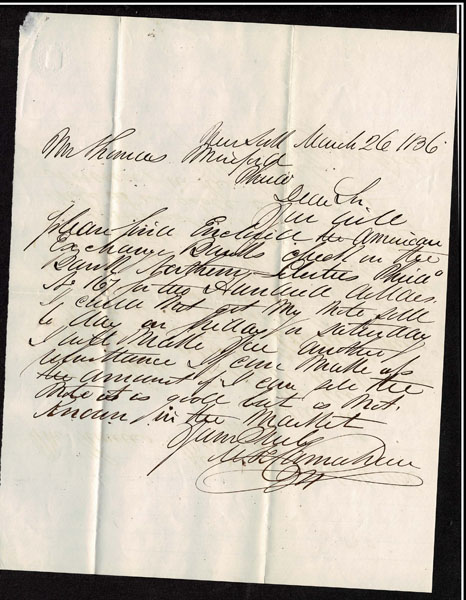 New York March 26 1836
Mr Thomas Winifred
Phila
Dear Sir
You will
please find Enclosed the American
Exchange Banks check on the
Bank Northern Liberties Phila
No 167 for two Hundred dollars.
I could not get my Note sold
to day on Friday or Saturday
I will make you another
remittance I can make up
the amount if I can sell the
Note it is good but is not
known in the market
Yours Truly